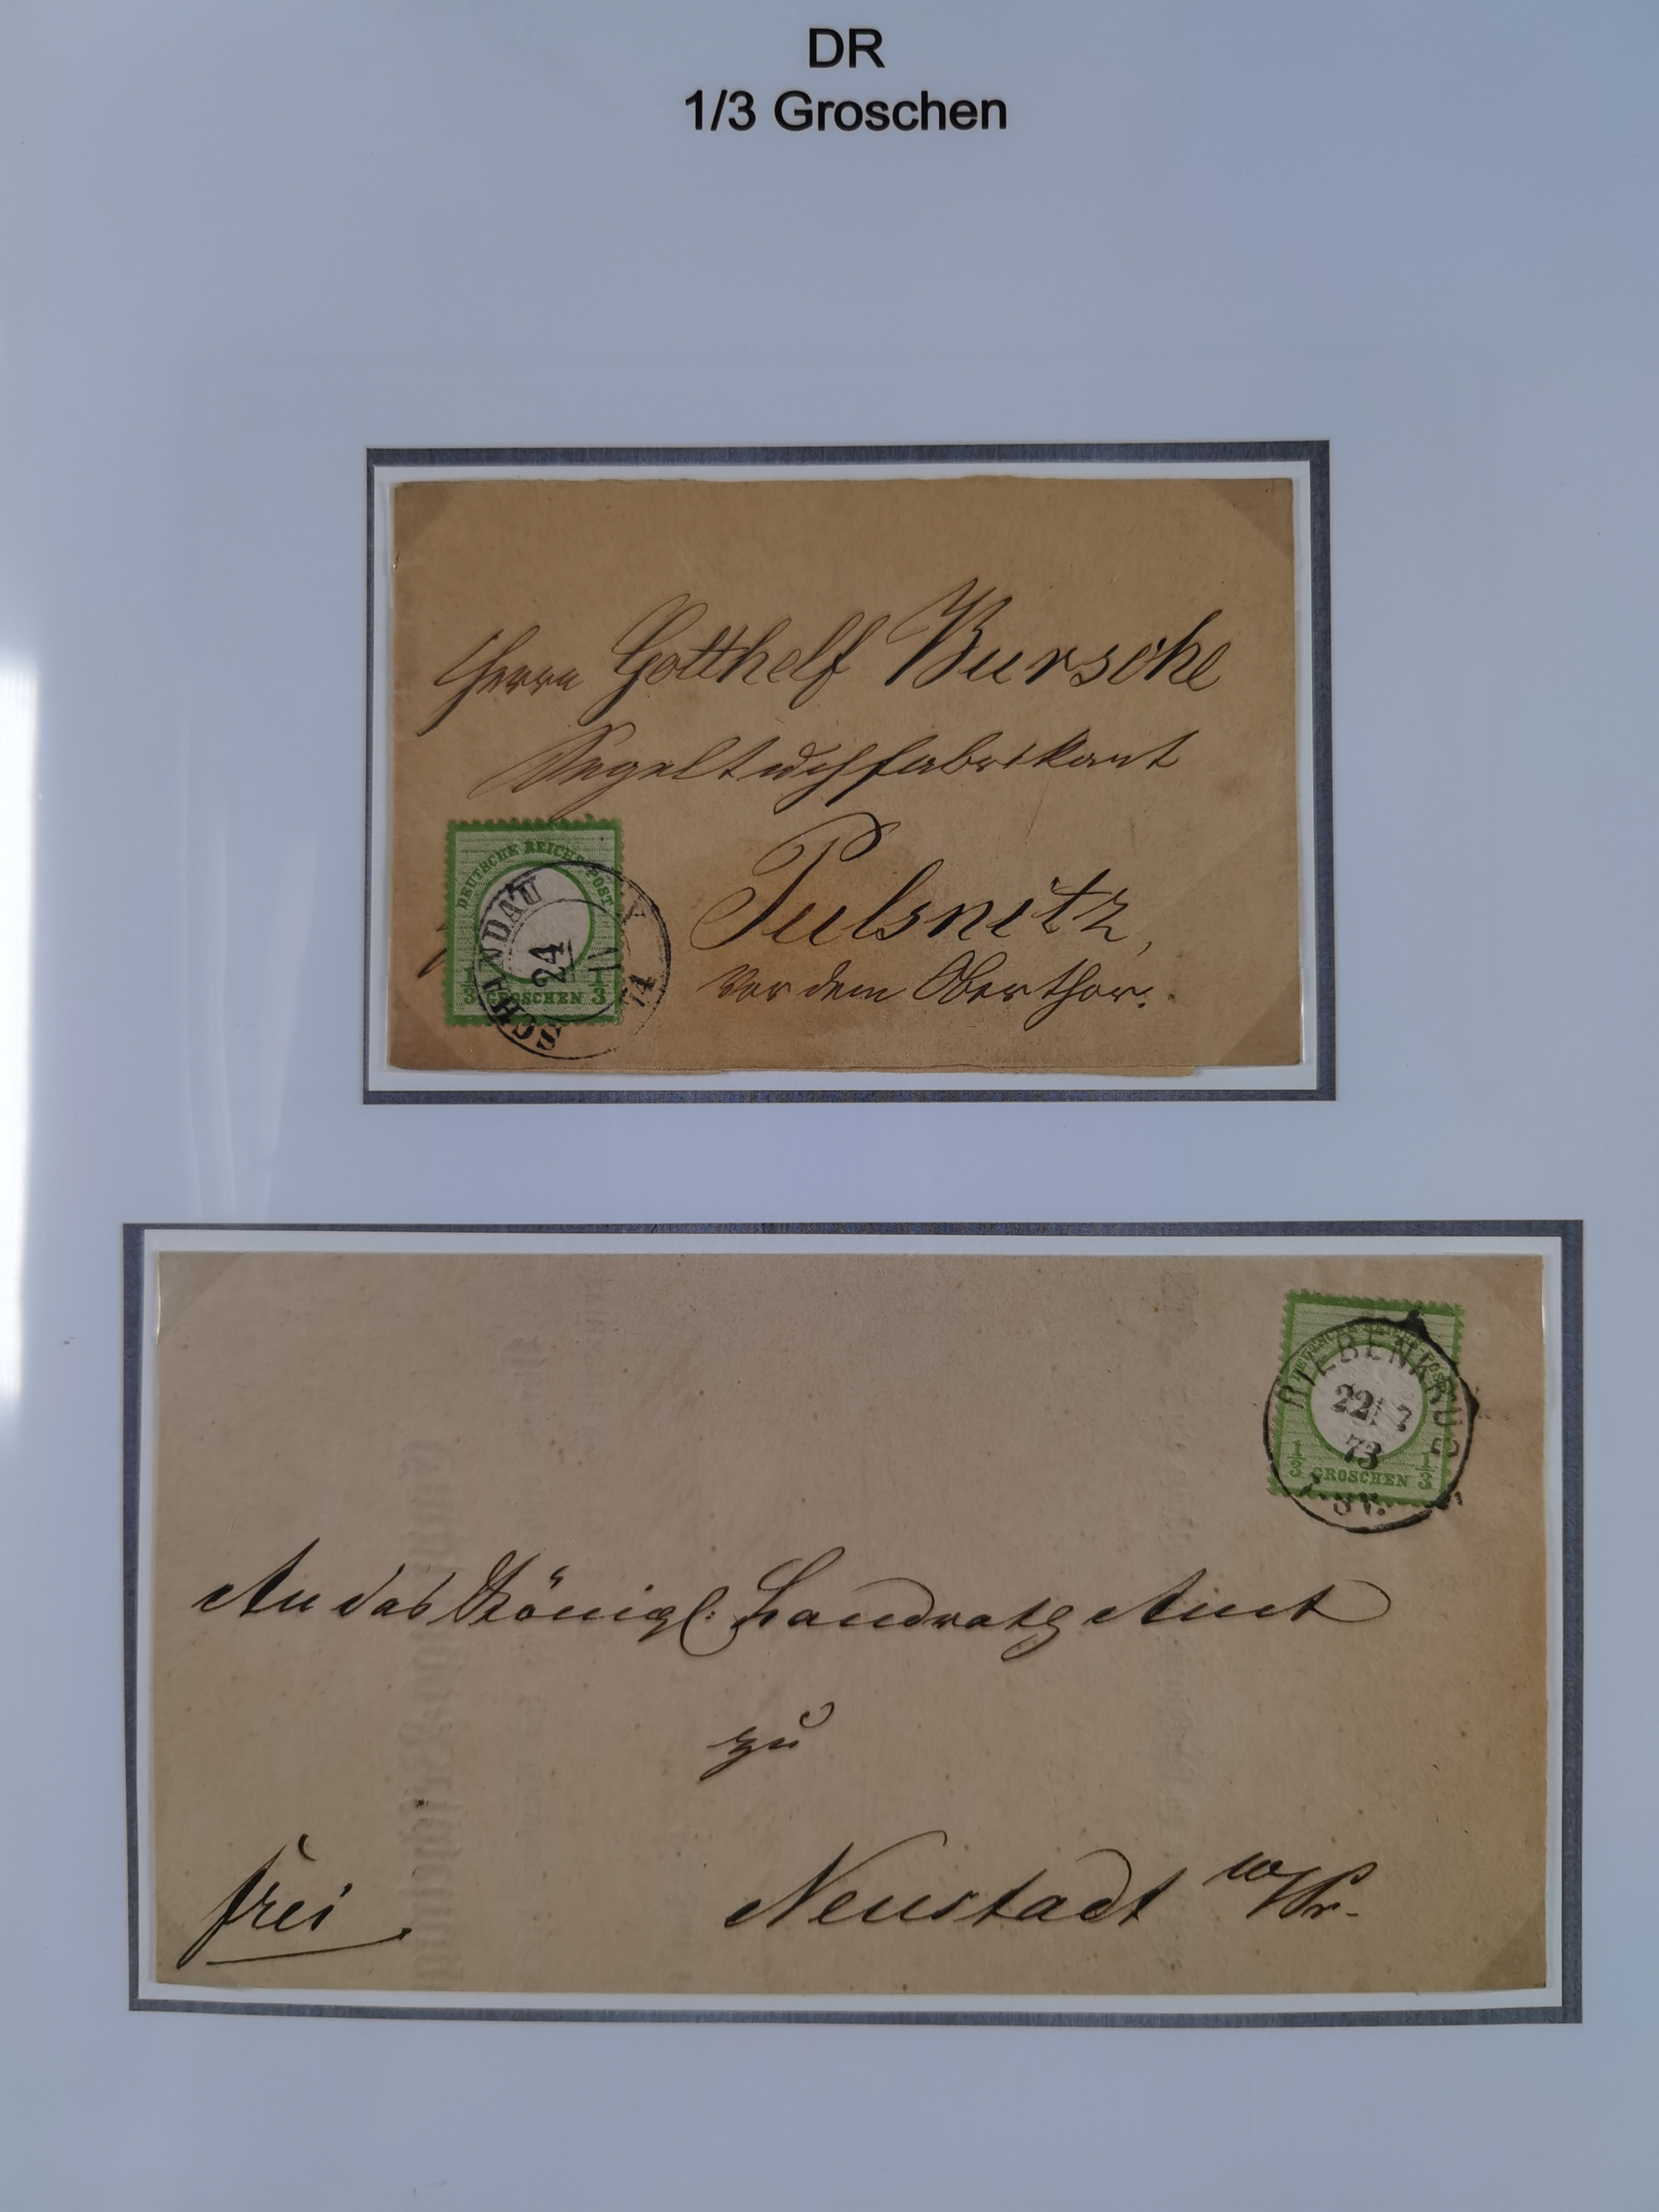 DR
1/3 Groschen
Herrn Gotthelf Bursche
Segeltuchfabrikant
Pulsnitz,
vor dem Oberthor.
DEUTSCHE REICHS-POST
1/3 GROSCHEN 1/3
SCHANDAU
24
V
74
RIEBENKRUG
22
73
1/3 GROSCHEN 1/3
An das Königl. Landraths Amt
zu
frei
Neustadt w/Pr.